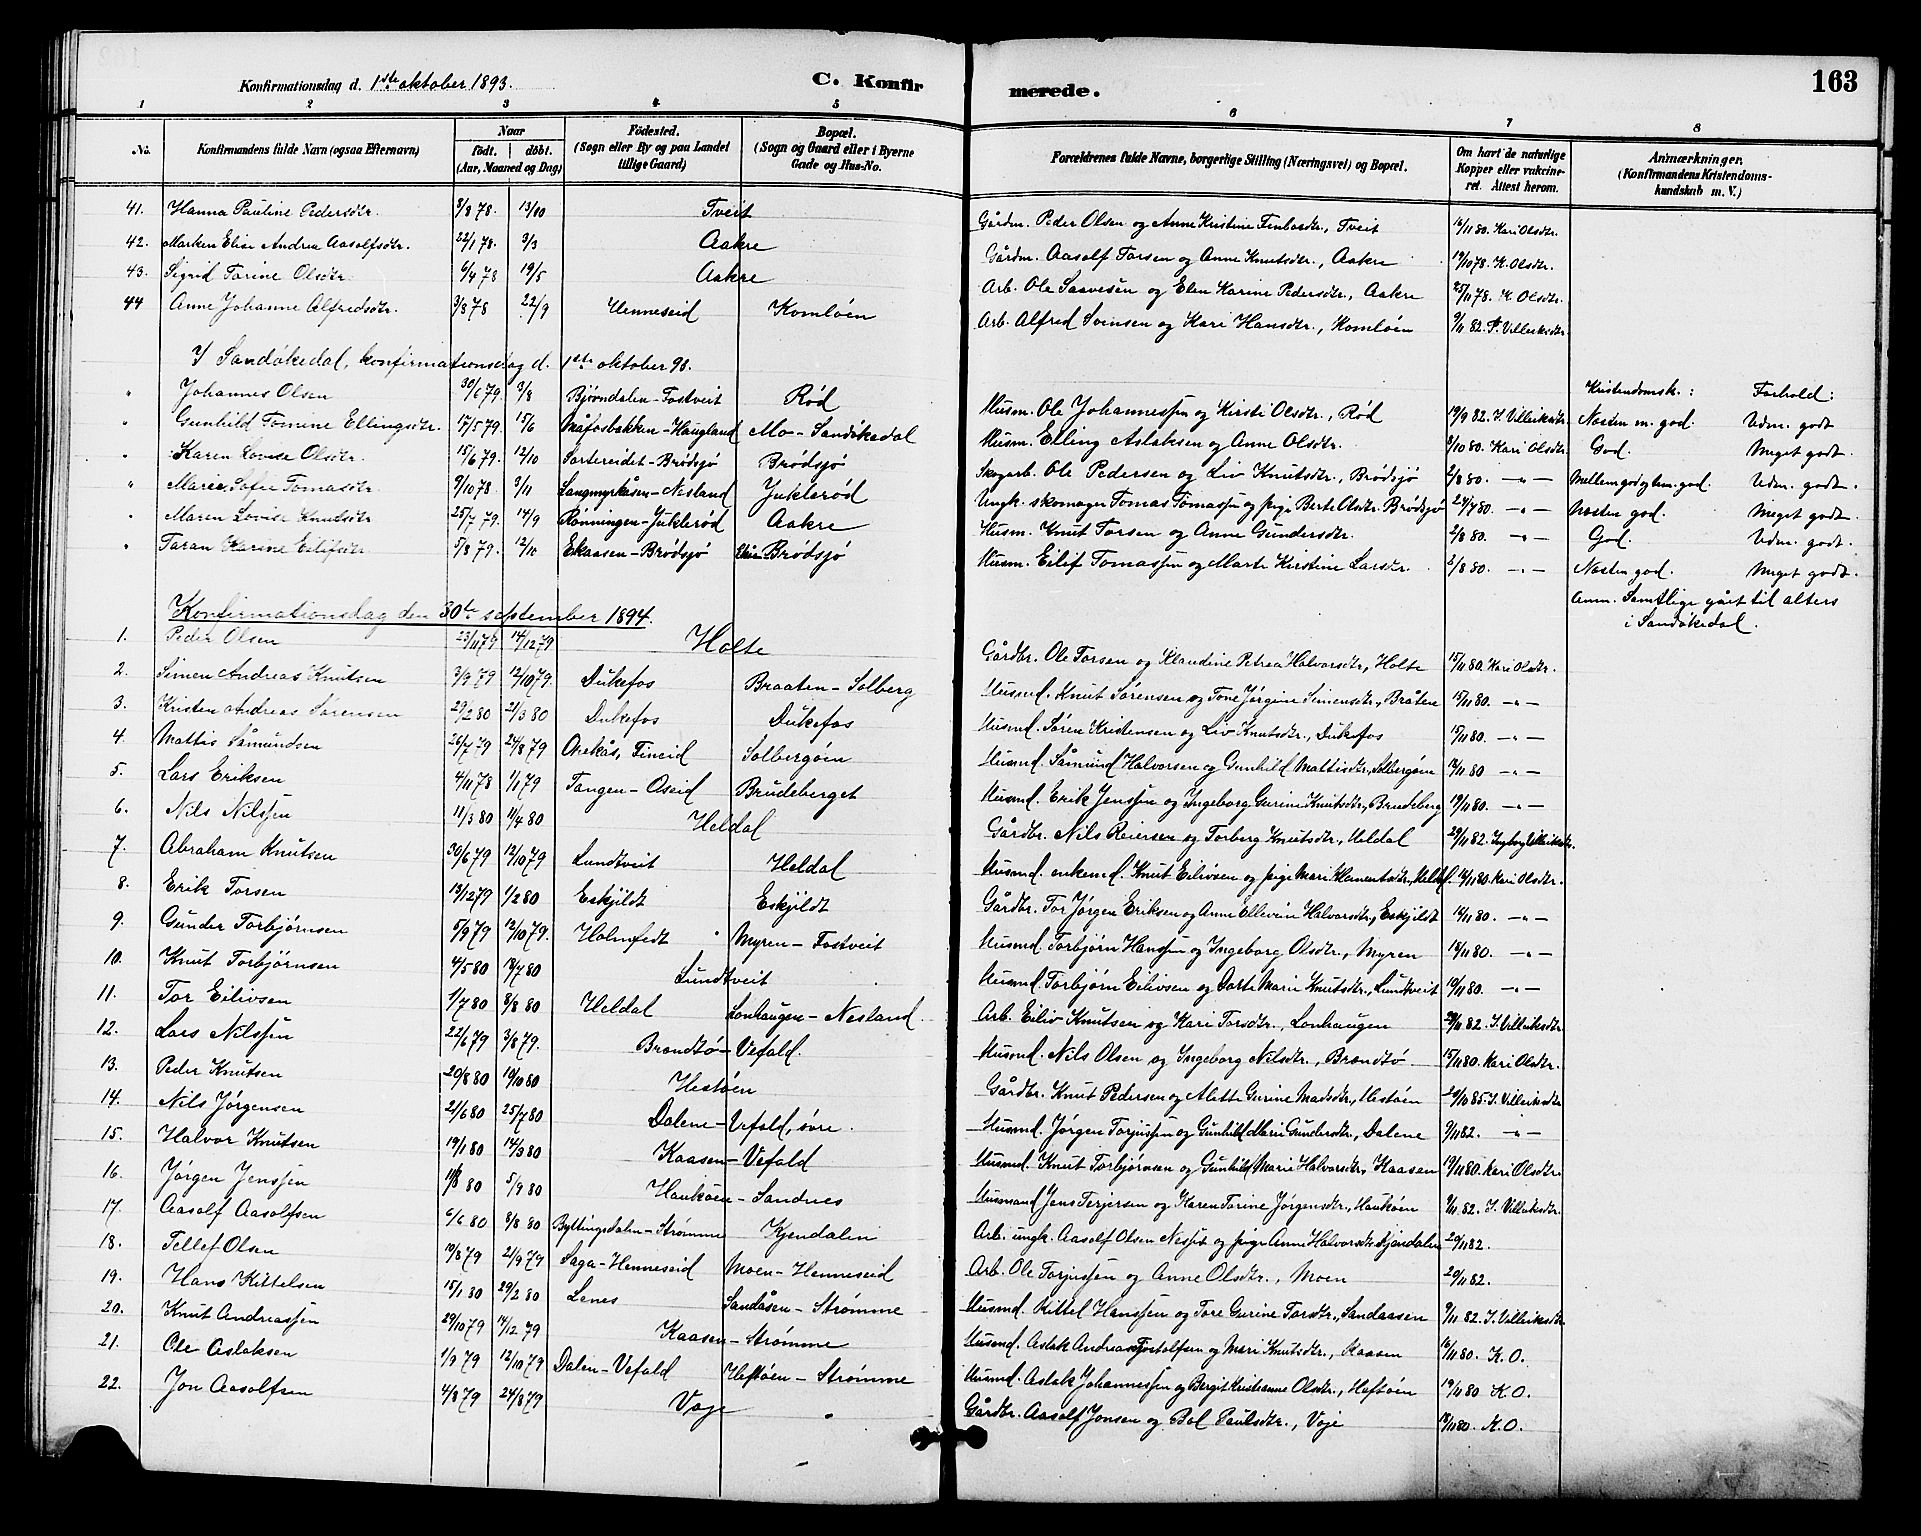 Konfirmationsdag d. 1ste oktober 1893.
C. Konfirmerede.
163
1 2 3 4 5 6 7 8
No.
Konfirmandens fulde Navn (ogsaa Efternavn)
Naar født. døbt. (Aar, Maaned og Dag)
Födested. (Sogn eller By og paa Landet tillige Gaard)
Bopæl. (Sogn og Gaard eller i Byerne Gade og Hus-No.
Forældrenes fulde Navne, borgerlige Stilling (Næringsvei) og Bopæl.
Om havt de naturlige Kopper eller vakcineret. Attest herom.
Anmærkninger. (Konfirmandens Kristendomskundskab m. V.)
41. Hanna Pauline Pedersdtr. 8/8 78. 13/10 Tveit Gårdm. Peder Olsen og Anne Kristine Finbosdtr., Tveit 16/11 80. Kari Olsdtr.
42. Marken Elise Andrea Aasolfsdtr. 22/1 78. 3/3 Aakre Gårdm. Aasolf Torsen og Anne Knutsdtr., Aakre 19/10 78. K. Olsdtr.
43. Sigrid Torine Olsdtr. 6/4 78 19/5 Aakre Arb. Ole Saavesen og Elen Karine Pedersdtr., Aakre 25/11 78. K. Olsdtr.
44 Anne Johanne Alfredsdtr. 3/8 78 22/9 Henneseid Komløen Arb. Alfred Svensen og Kari Hansdtr., Komløen 9/11 82. Villeriksdtr.
I Sandøkedal, konfirmationsdag d. 1ste oktober 93.
Kristendomsk.: Forhold:
" Johannes Olsen 30/6 79. 3/8 Bjørndalen-Fostveit Rød Husm. Ole Johannessen og Kirsti Olsdtr., Rød 19/9 82. I. Villeriksdtr. Næsten m. god. Udm. godt
" Gunhild Tomine Ellingsdtr. 17/5 79. 15/6 Måfosbakken-Haugland Mo-Sandøkedal Husm. Elling Aslaksen og Anne Olsdtr. 8/10 80. Kari Olsdtr. God. Meget godt.
" Karen Lovise Olsdtr. 15/6 79. 12/10 Sortereidet-Brødsjø Brødsjø Skogarb. Ole Pedersen og Liv Knutsdtr., Brødsjø 2/8 80. -"- Mellem god og tem. god. Udm. godt.
" Maren Sofie Tomasdtr. 9/10 78. 3/11 Langmyråsen-Nesland Juklerød Ungk. skomager Tomas Tomassen og pige Berte Olsdtr. Brødsjø 24/4 80. -"- Næsten god. Meget godt.
" Maren Lovise Knutsdtr 25/7 79. 14/9 Rønningen-Juklerød Aakre Husm. Knut Torsen og Anne Gundersdtr. 2/8 80. -"- God. Udm. godt.
" Taran Karine Eilifsdtr. 5/8 79. 12/10 Ekaasen-Brødsjø Brødsjø Husm. Eilif Tomassen og Marte Kirstine Larsdtr. 2/8 80. -"- Næsten god. Meget godt.
Anm. Samtlige gået til alters
i Sandøkedal.
Konfirmationsdag den 30te september 1894.
1. Peder Olsen 23/11 79 14/12 79 Holte Gårdbr. Ole Torsen og Klaudine Petrea Halvorsdtr., Holte 15/11 80. Kari Olsdtr.
2. Simen Andreas Knutsen 3/9 79 12/10 79. Dukefos Braaten-Solberg Husmd. Knut Sørensen og Tone Jørgine Simensdtr., Bråten 15/11 80. -"-
3. Kristen Andreas Sørensen 29/2 80 21/3 80 Dukefos Dukefos Husmd. Søren Kristensen og Liv Knutsdtr., Dukefos 15/11 80. -"-
4. Mattis Såmundsen 26/7 79 24/8 79 Orekås, Fineid Solbergøen Husmd. Såmund Halvorsen og Gunhild Mattisdtr., Solbergøen 18/11 80 -"-
5. Lars Eriksen 4/11 78 1/1 79 Tangen-Oseid Brudeberget Husmd. Erik Jenssen og Ingeborg Gurine Knutsdtr., Brudeberg 19/11 80. -"-
6. Nils Nilssen 11/3 80 11/4 80 Heldal Gårdbr. Nils Reiersen og Torberg Knutsdtr., Heldal 29/11 82. Ingborg Villeriksdtr.
7. Abraham Knutsen 30/6 79 12/10 79. Lundtveit Heldal Husmd. enkemd. Knut Eilivsen og pige Mari Klementsdtr., Heldal. 18/11 80. Kari Olsdtr.
8. Erik Torsen 13/12 79 1/2 80 Eskjildt Eskjildt Gårdbr. Tor Jørgen Eriksen og Anne Ellevine Halvorsdtr., Eskjildt 18/11 80. -"-
9. Gunder Torbjørnsen 5/9 79 12/10 79. Holmfedt Myren-Fostveit Husmd. Torbjørn Hanssen og Ingeborg Olsdtr., Myren 18/11 80. -"-
10. Knut Torbjørnsen 4/5 80 18/7 80 Lundtveit Husmd. Torbjørn Eilivsen og Dorte Marie Knutsdtr., Lundtveit 19/11 80. -"-
11. Tor Eilivsen 1/7 80 8/8 80 Heldal Lonhaugen-Nesland. Arb. Eiliv Knutsen og Kari Torsdtr., Lonhaugen 29/11 82. I. Villeriksdtr.
12. Lars Nilssen 22/6 79 3/8 79. Brændtø-Vefald. Husmd. Nils Olsen og Ingeborg Nilsdtr., Brændtø 15/11 80. Kari Olsdtr.
13. Peder Knutsen 20/8 80 19/10 80 Hestøen Gårdbr. Knut Pedersen og Alette Gurine Madsdtr., Hestøen 29/10 85. I. Villeriksdtr
14. Nils Jørgensen 21/6 80 25/7 80 Dalene-Vefald, søre. Husmd. Jørgen Torjussen og Gunhild Marie Gundersdtr., Dalene 9/11 82. -"-
15. Halvor Knutsen 19/1 80 14/3 80 Kaasen-Vefald Husmd. Knut Torbjørnsen og Gunhild Marie Halvorsdtr., Kaasen 19/11 80. Kari Olsdtr.
16. Jørgen Jenssen 11/8 80 5/9 80 Haukøen-Sandnes Husmand Jens Terjersen og Karen Torine Jørgensdtr., Haukøen 9/11 82. I. Villeriksdtr.
17. Aasolf Aasolfsen 6/6 80 8/8 80 Byttingsdalen-Strømme Kjendalen Arb. ungk. Aasolf Olsen og pige Anne Halvorsdtr. Kjendalen 29/11 82.
18. Tellef Olsen 10/8 79 21/9 79 Saga-Henneseid Moen-Henneseid Arb. Ole Torjussen og Anne Olsdtr., Moen 29/11 82.
19. Hans Kittelsen 15/1 80 29/2 80 Lenes Sandåsen-Strømme Husmd. Kittel Hanssen og Tore Gurine Torsdtr., Sandaasen 9/11 82. I. Villeriksdtr
20. Knut Andreassen 29/10 79 14/12 79 Kaasen-Strømme Husmd. Aslak Andreas Tostolfsen og Mari Knutsdtr., Kaasen 16/11 80. K.O.
21. Ole Aslaksen 1/9 79 12/10 79 Dalen-Vefald Heftøen-Strømme Husmd. Aslak Johannessen og Bergit Kristianne Olsdtr., Heftøen 19/11 80 K.O.
22. Jon Aasolfsen 4/8 79 24/8 79 Voje " Gårdbr. Aasolf Jonsen og Bol Paulsdtr., Voje 18/11 80. K.O.